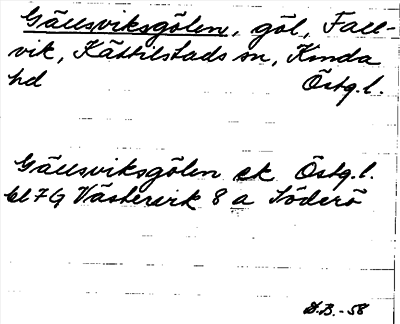 Gällsviksgölen, göl, Fall-
vik, Kättilstads sn, Kinda
hd Östg.l.
Gällsviksgölen ek Östg.l.
bl 7G Västervik 8 a Söderö
D.B.-58